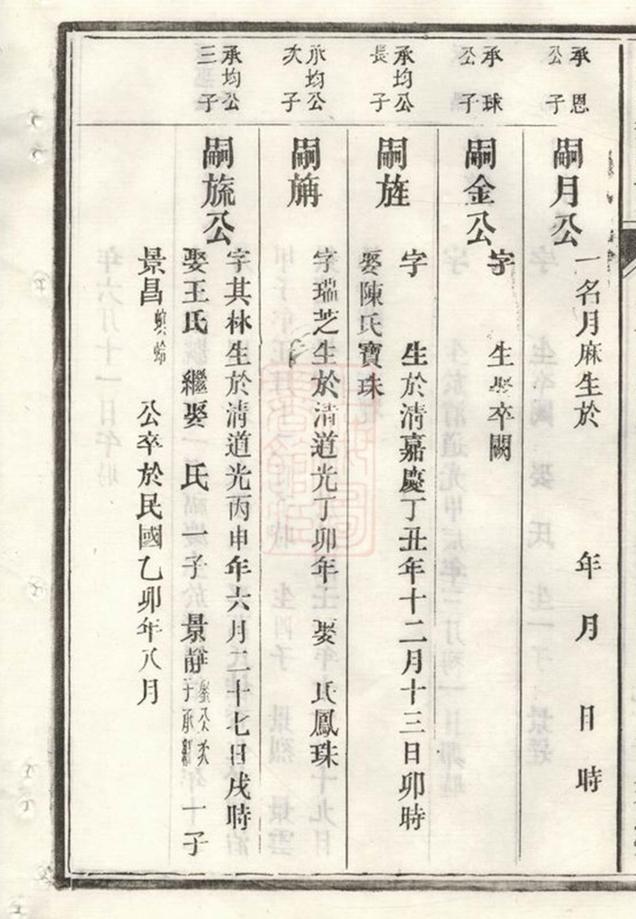 承恩
公子
嗣月公
一名月麻生於 年 月 日 時
承球
公子
嗣金公
字 生 娶卒闕
承均公
長子
嗣旌
字 生於清嘉慶丁丑年十二月十三日卯時
娶陳氏寶珠
承均公
次子
嗣旃
字瑞芝生於清道光丁卯年 娶 氏鳳珠
承均公
三子
嗣旒公
字其林生於清道光丙申年六月二十七日戌時
娶王氏繼娶 氏一子 景靜 公次
子承繼 一子
景昌螟蛉 公卒於民國乙卯年八月